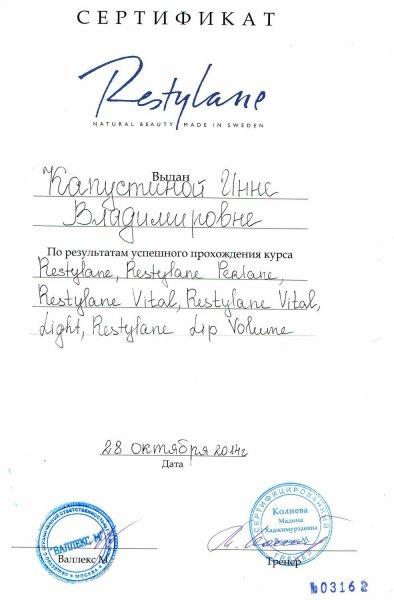 СЕРТИФИКАТ
Restylane
NATURAL BEAUTY MADE IN SWEDEN
Выдан
Капустиной Инне
Владимировне
По результатам успешного прохождения курса
Restylane, Restylane Perlane,
Restylane Vital, Restylane Vital,
Light, Restylane Lip Volume
28 октября 2014г
Дата
"ВАЛЛЕКС М"
Валлекс М
СЕРТИФИЦИРОВАННЫЙ
Колиева
Мадина
Хаджимурзаевна
ТРЕНЕР
Тренер
№03162